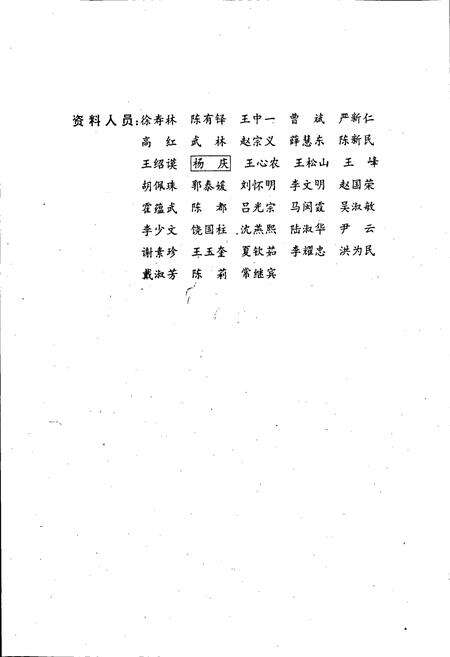 资料人员:徐寿林 陈有铎 王中一 曹斌 严新仁
高红 武林 赵宗义 薛慧东 陈新民
王绍谟 杨庆 王心农 王松山 王峰
胡佩珠 郭泰媛 刘怀明 李文明 赵国荣
霍蕴武 陈都 吕光宗 马闽霞 吴淑敏
李少文 饶国柱 沈燕熙 陆淑华 尹云
谢素珍 王玉奎 夏钦茹 李耀忠 洪为民
戴淑芳 陈莉 常继宾